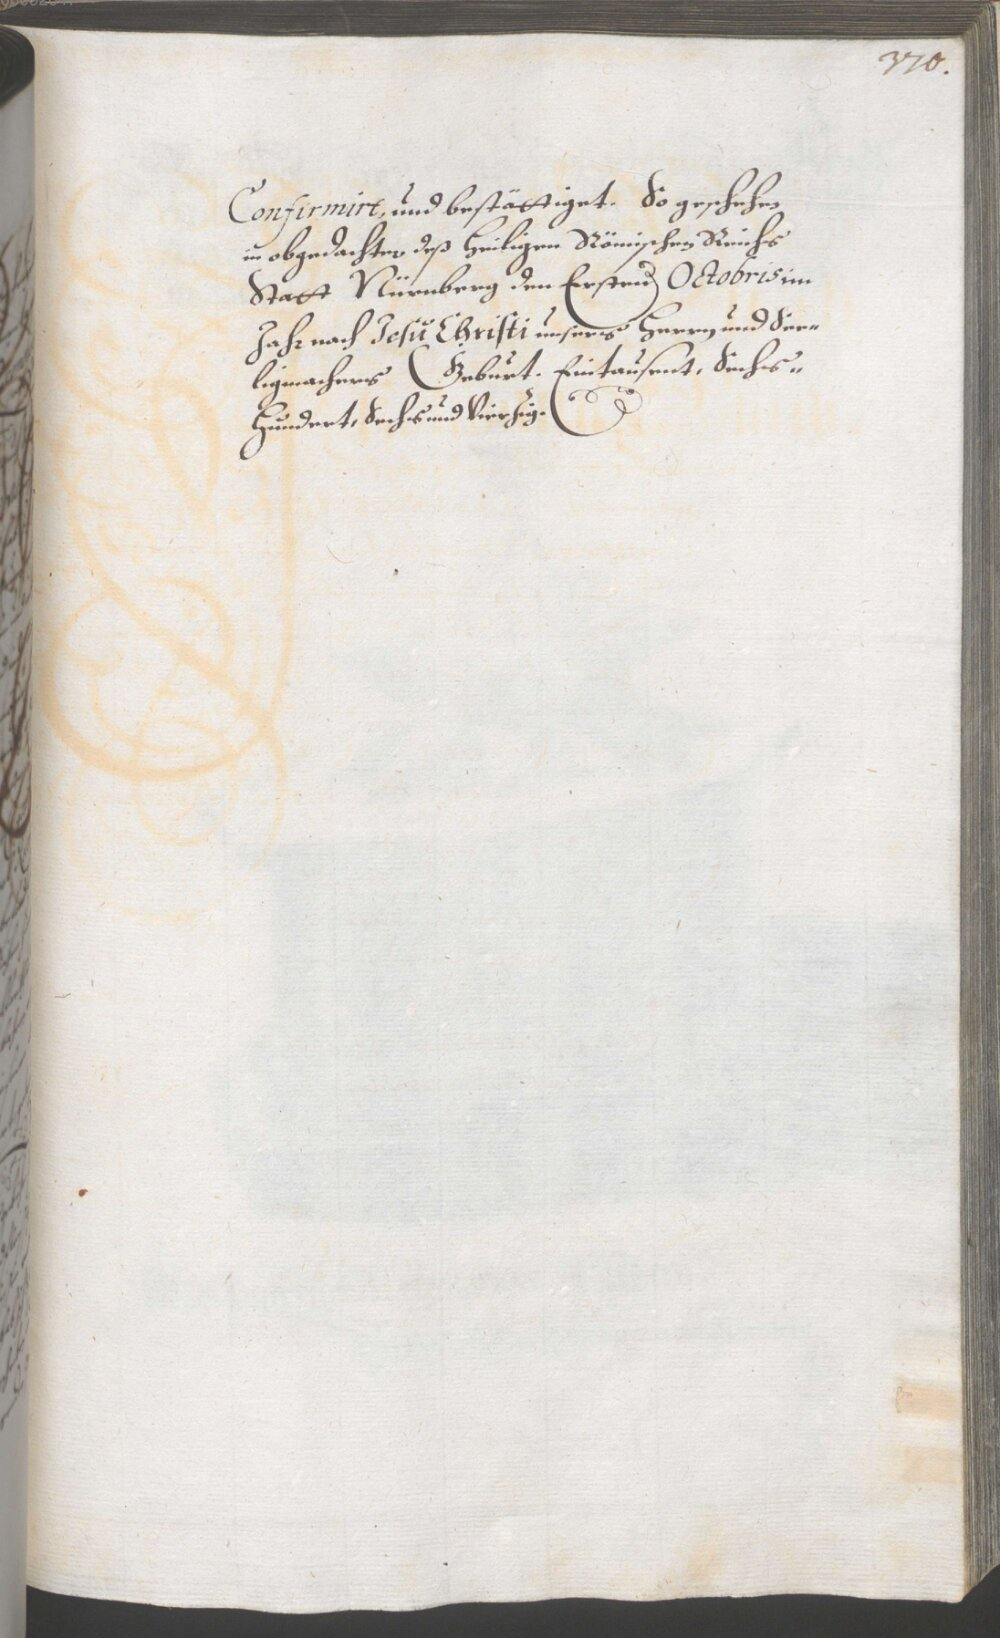 370.
Confirmirt, und bestättiget. So geschehen
in obgedachter deß Heiligen Römischen Reichs
Statt Nürnberg den Ersten Octobris im
Jahr nach Jesu Christi unsers Herrn und See-
ligmachers Geburt. Eintausent, Sechs-
Hundert, Sechs und Vierzig.